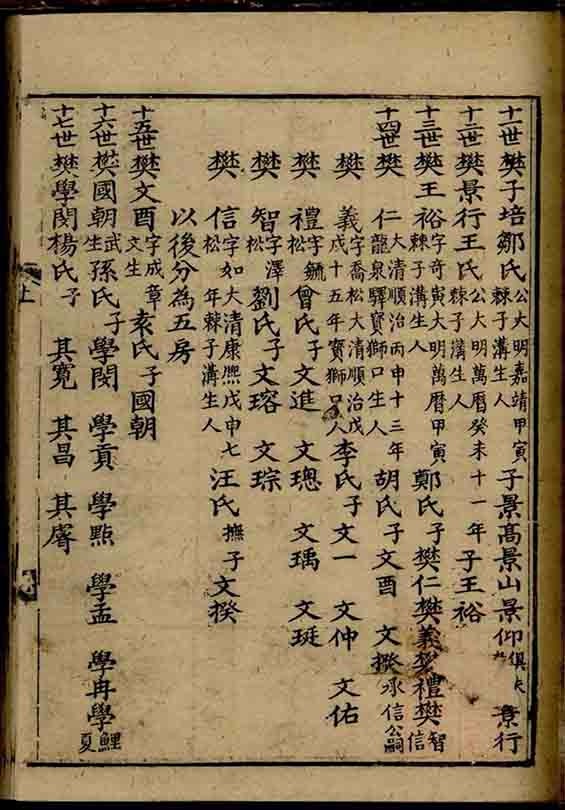 十一世樊子培鄒氏公大明嘉靖甲寅棘子溝生人子景髙景山景仰俱失景行
十二世樊景行王氏公大明萬曆癸未十一年棘子溝生人子王裕
十三世樊王裕字奇寅大明萬曆甲寅棘子溝生人鄭氏子樊仁樊義樊禮樊智信
十四世樊仁大清順治丙申十三年龍泉驛寳獅口生人胡氏子文酉文揆承信公嗣
樊義字喬松大清順治戊戌十五年寳獅口人李氏子文一文仲文佑
樊禮字毓松曾氏子文進文璁文瑀文珽
樊智字澤松劉氏子文瑢文琮
樊信字如松大清康熈戊申七年棘子溝生人汪氏撫子文揆
以後分為五房
十五世樊文酉字成章文生袁氏子國朝
十六世樊國朝武生孫氏子學閔學貢學㸃學孟學冉學鯉夏
十七世樊學閔楊氏子其寛其昌其
上